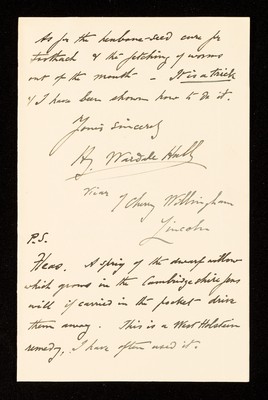 As for the henbane-seed cure for
toothach & the fetching of worms
out of the mouth — It is a trick
& I have been shown how to do it.
Yours sincerely
Hy. Wardale
Vicar
Cherry Willingham
Lincoln
P.S.
Fleas. A sprig of the dwarf willow
which grows in the Cambridgeshire fens
will if carried in the pocket drive
them away. This is a West Holstein
remedy, I have often used it.